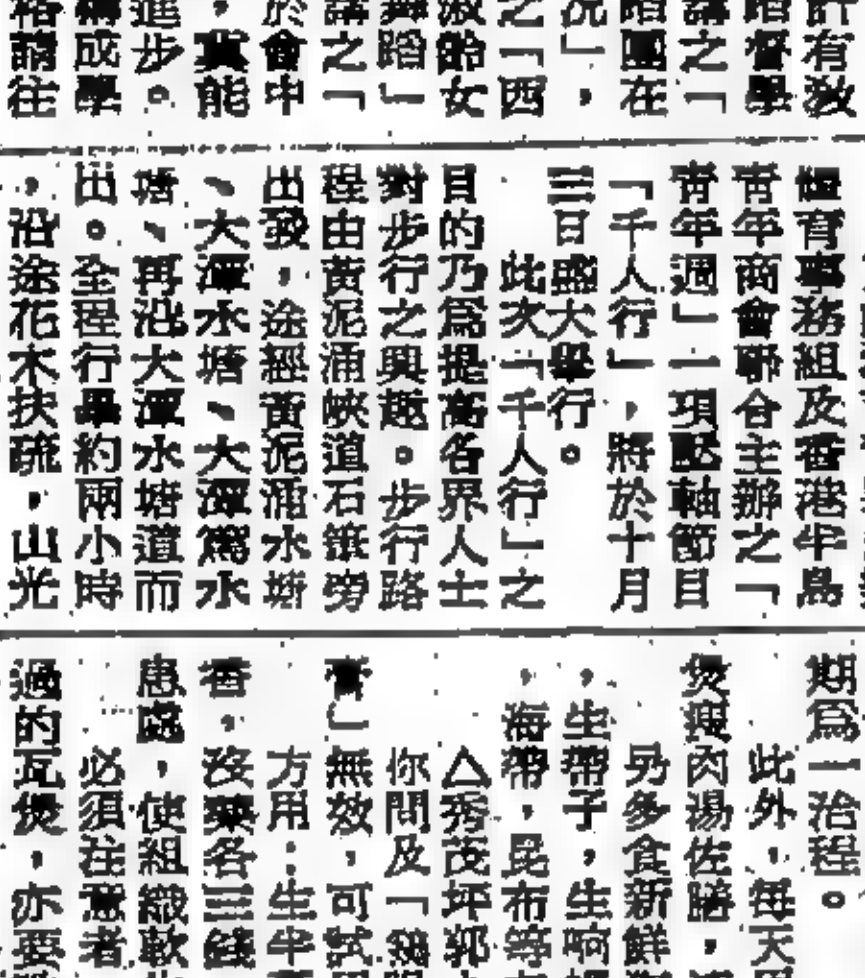 許有教
踏督學
講之「
踏團在
況」，
之「西
淑齡女
舞蹈」
講之「
於會中
，冀能
進步。
構成學
格請往
體育事務組及香港半島
青年商會聯合主辦之「
青年週」一項壓軸節目
「千人行」，將於十月
三日盛大舉行。
此次「千人行」之
目的乃為提高各界人士
對步行之興趣。步行路
程由黃泥涌峽道石級旁
出發，途經黃泥涌水塘
、大潭水塘、大潭篤水
塘、再沿大潭水塘道而
出。全程行畢約兩小時
，沿途花木扶疏，山光
期為一治程。
此外，每天
煲瘦肉湯佐膳，
另多食新鮮
，生帶子，生蠔
，海帶，昆布等
△秀茂坪郭
你問及「
膏」無效，可試
方用：生半
香，沒藥各三錢
患處，使組織軟
必須注意者
過的瓦煲，亦要